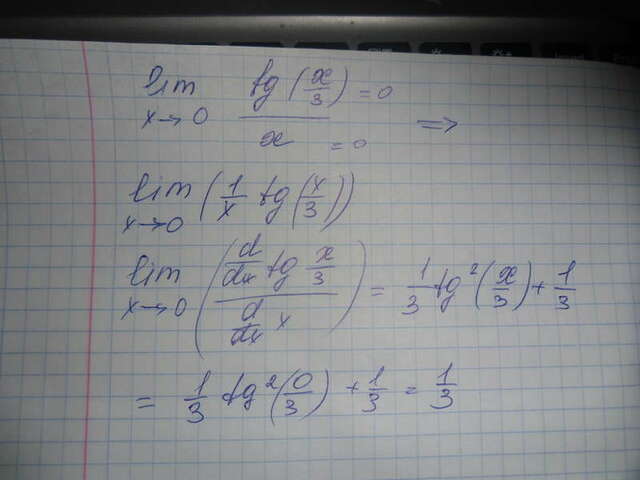 lim x→0 tg(x/3) = 0 / x = 0 ⇒
lim x→0 (1/x tg(x/3))
lim x→0 (d/dx tg x/3 / d/dx x) = 1/3 tg²(x/3) + 1/3
= 1/3 tg²(0/3) + 1/3 = 1/3